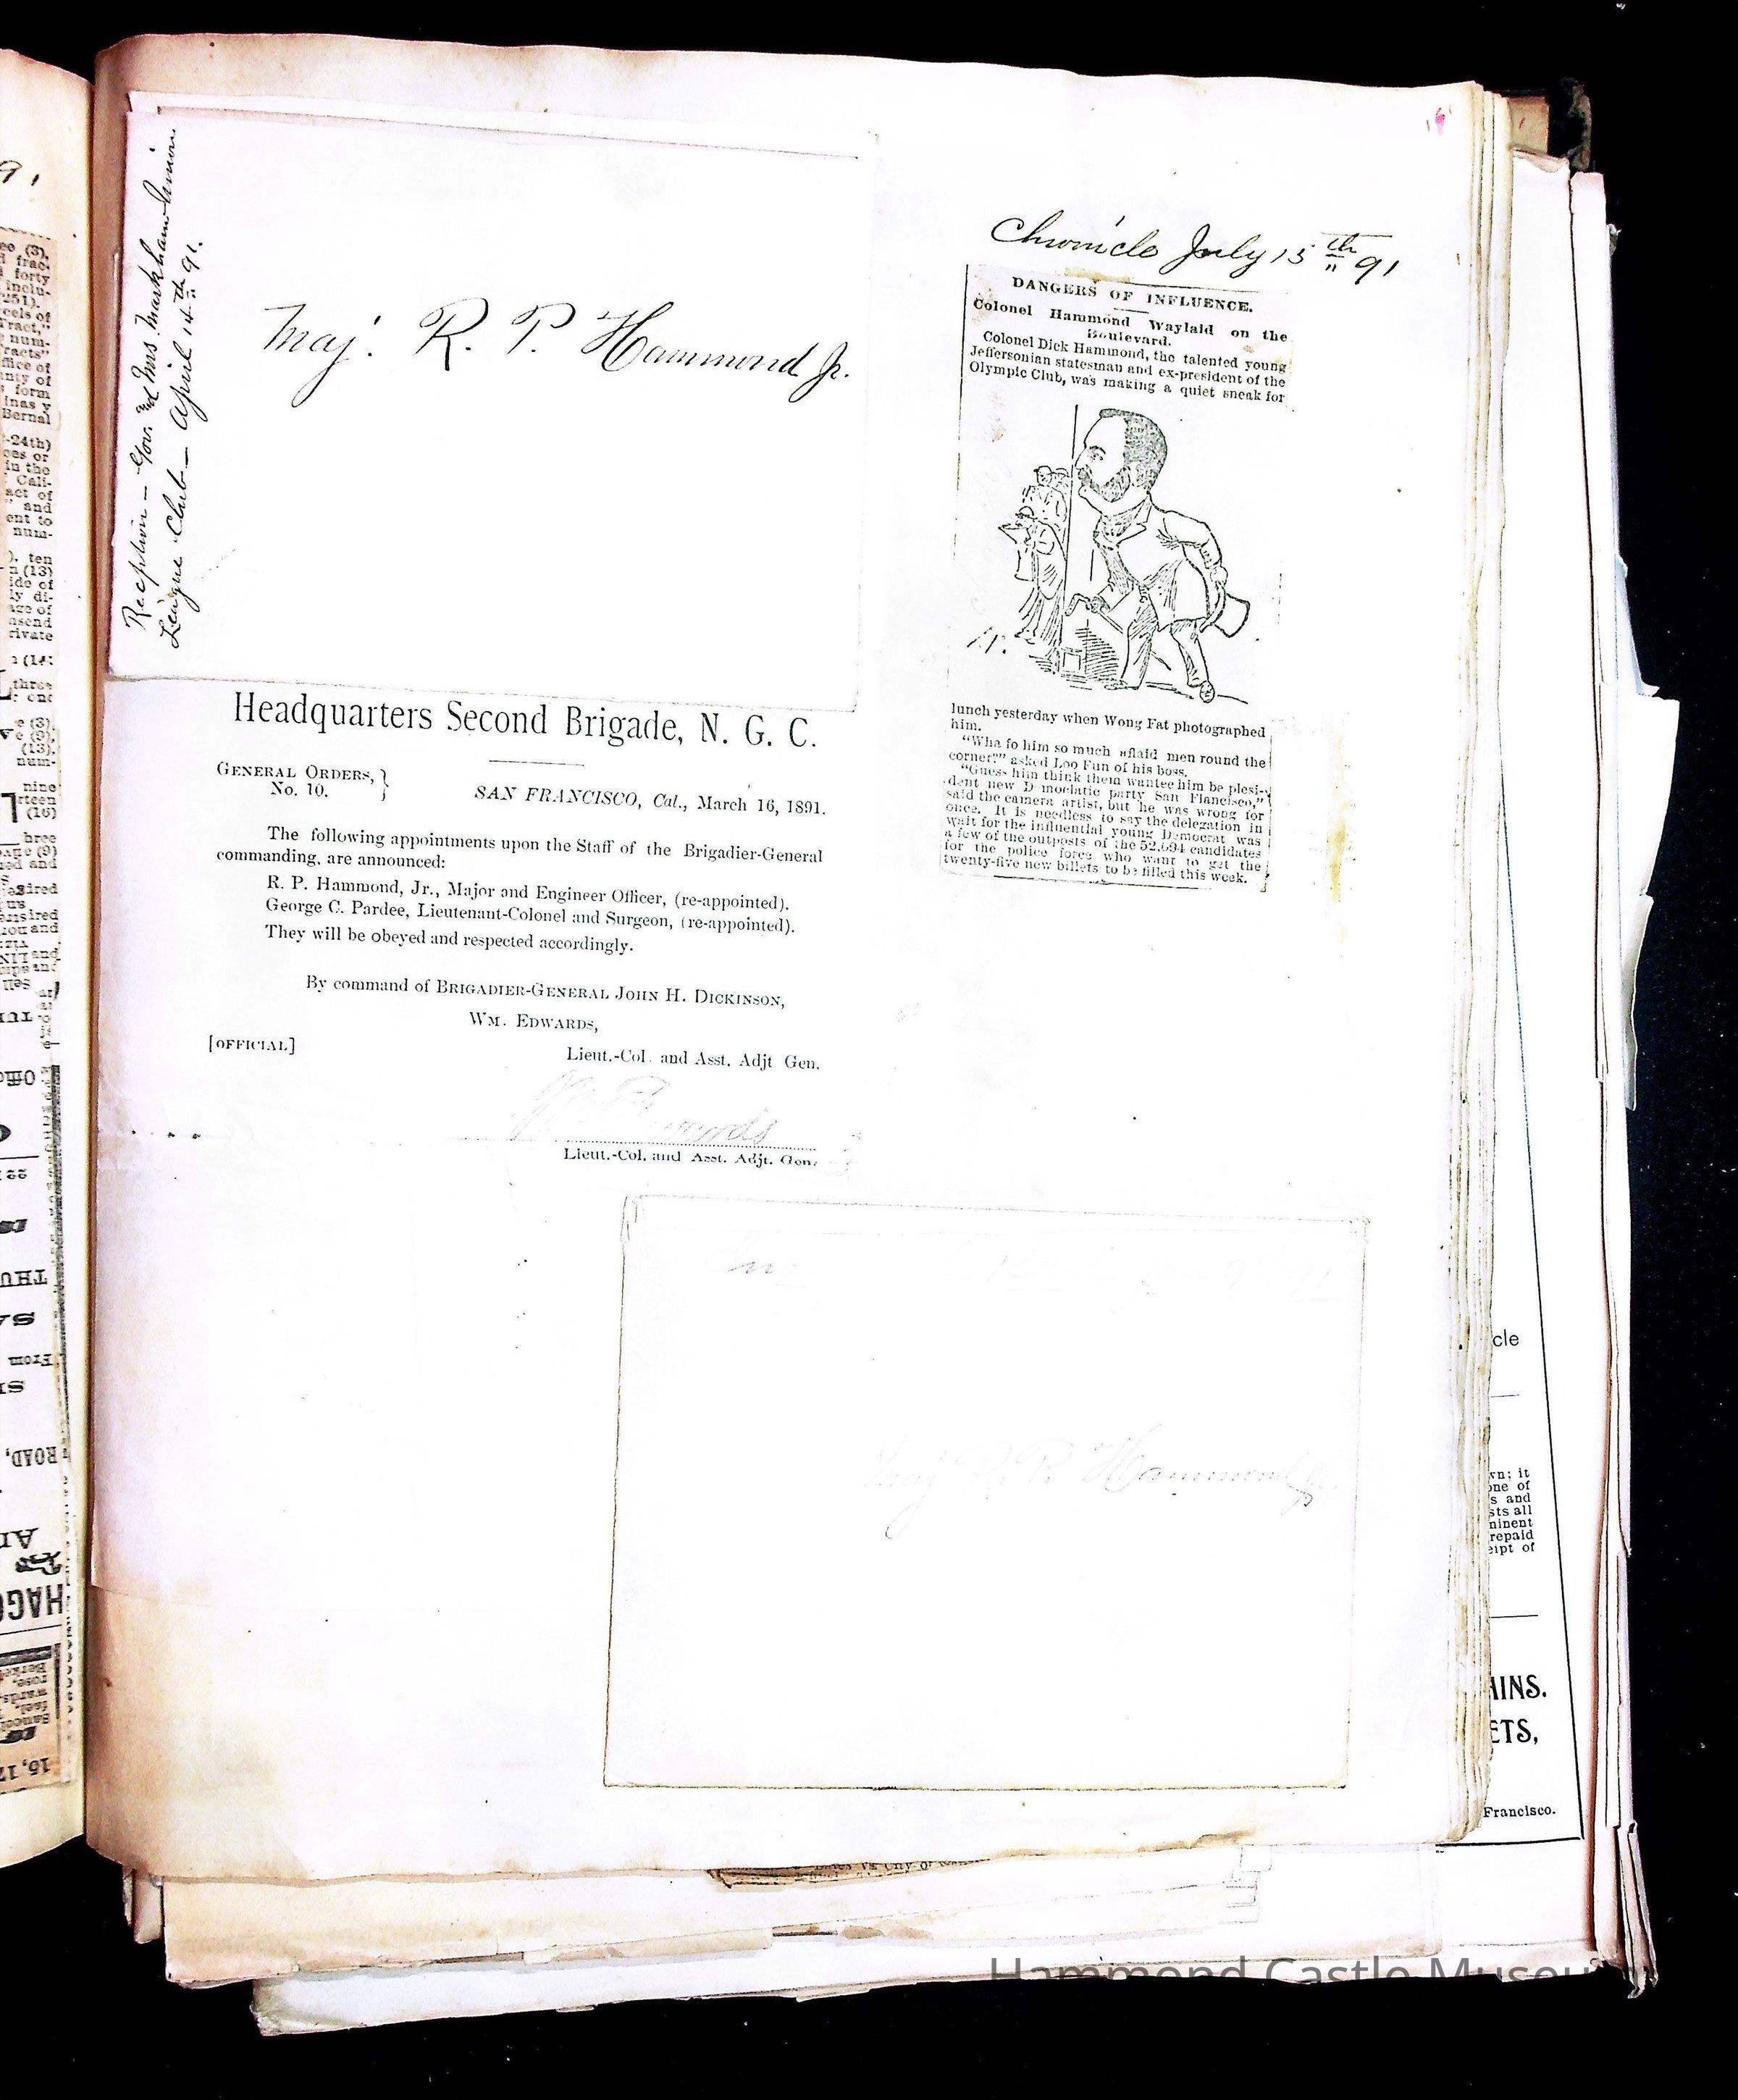 Reception — Gov. and Mrs. Markham Union
League Club — April 14th 91.
Maj. R. P. Hammond Jr.
Headquarters Second Brigade, N. G. C.
GENERAL ORDERS, }
No. 10.
SAN FRANCISCO, Cal., March 16, 1891.
The following appointments upon the Staff of the Brigadier-General
commanding, are announced:
R. P. Hammond, Jr., Major and Engineer Officer, (re-appointed).
George C. Pardee, Lieutenant-Colonel and Surgeon, (re-appointed).
They will be obeyed and respected accordingly.
By command of BRIGADIER-GENERAL JOHN H. DICKINSON,
WM. EDWARDS,
[OFFICIAL]
Lieut.-Col. and Asst. Adjt Gen.
Wm Edwards
Lieut.-Col. and Asst. Adjt. Gen.
Chronicle July 15th 91
DANGERS OF INFLUENCE.
Colonel Hammond Waylaid on the
Boulevard.
Colonel Dick Hammond, the talented young
Jeffersonian statesman and ex-president of the
Olympic Club, was making a quiet sneak for
lunch yesterday when Wong Fat photographed
him.
"Wha fo him so much aflaid men round the
corner?" asked Loo Fun of his boss.
"Guess him think them wantee him be plesi-
dent new Democlatic party San Flancisco,"
said the camera artist, but he was wrong for
once. It is needless to say the delegation in
wait for the influential young Democrat was
a few of the outposts of the 52,694 candidates
for the police force who want to get the
twenty-five new billets to be filled this week.
Maj R. P. Hammond Jr.
91.
(3).
forty
251).
num-
Bernal
-24th)
in the
Cali-
act of
and
ent to
num-
ten
(13)
ide of
rivate
three
nine
rteen
(16)
THU
From
ROAD,
HAGG
16, 17
cle
wn; it
one of
s and
sts all
minent
repaid
eipt of
AINS.
ETS,
Francisco.
Hammond Castle Museum